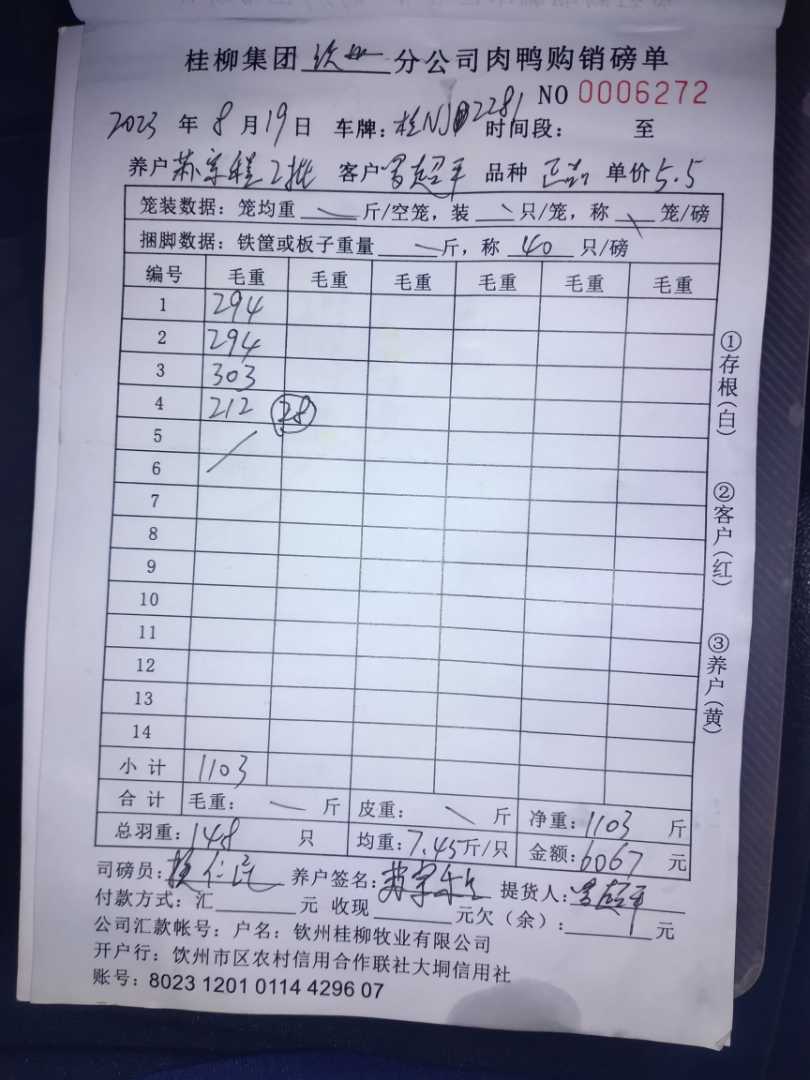 桂柳集团 钦州 分公司肉鸭购销磅单
NO 0006272
2023 年 8 月 19 日 车牌：桂N 02281 时间段： 至
养户 2批 客户 罗超平 品种 正品 单价 5.5
笼装数据：笼均重 斤/空笼，装 只/笼，称 笼/磅
捆脚数据：铁筐或板子重量 斤，称 40 只/磅
编号 毛重 毛重 毛重 毛重 毛重 毛重
1 294
2 294
3 303
4 212 28
5
6
7
8
9
10
11
12
13
14
小计 1103
合计 毛重： 斤 皮重： 斤 净重：1103 斤
总羽重：148 只 均重：7.45斤/只 金额：6067 元
司磅员： 养户签名： 提货人：罗超平
付款方式：汇 元 收现 元欠（余）： 元
公司汇款帐号：户名：钦州桂柳牧业有限公司
开户行：饮州市区农村信用合作联社大垌信用社
账号：8023 1201 0114 4296 07
①存根（白）
②客户（红）
③养户（黄）